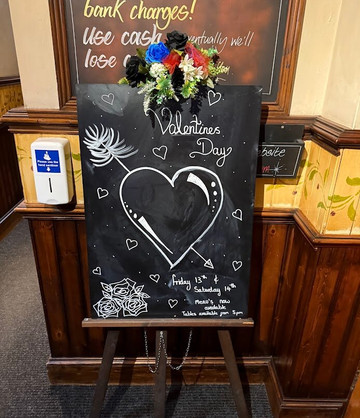 bank charges!
Use cash
eventually we'll
lose
Please use the
hand sanitiser
Valentines
Day
Friday 13th &
Saturday 14th
Menu's now
available
Tables available from 5pm